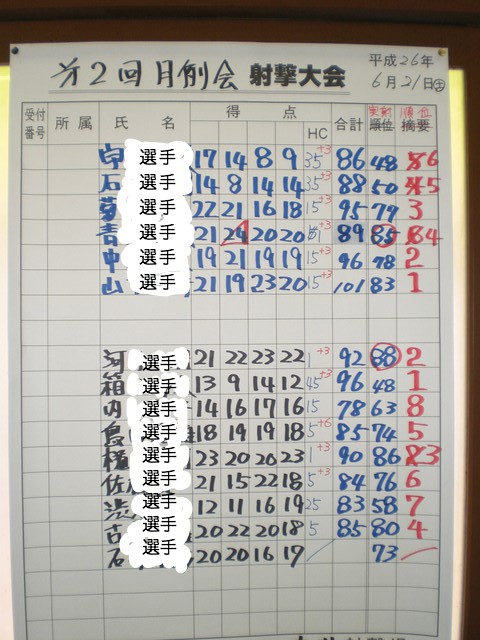 第2回月例会 射撃大会
平成26年
6月21日㊏
受付番号 所属 氏 名 得 点 HC 合計 実射順位 順位摘要
選手 17 14 8 9 35 +3 86 48 6
石 選手 14 8 14 14 35 +3 88 50 5
選手 22 21 16 18 15 +3 95 79 3
青 選手 21 24 20 20 1 +3 89 85 4
中 選手 19 21 19 19 15 +3 96 78 2
山 選手 21 19 23 20 15 +3 101 83 1
河 選手 21 22 23 22 1 +3 92 88 2
箱 選手 13 9 14 12 45 +3 96 48 1
内 選手 14 16 17 16 15 78 63 8
島 選手 18 19 19 18 5 +6 85 74 5
選手 23 20 20 23 1 +3 90 86 3
佐 選手 21 15 22 18 5 +3 84 76 6
渋 選手 12 11 16 19 25 83 58 7
古 選手 20 22 20 18 5 85 80 4
石 選手 20 20 16 19 73